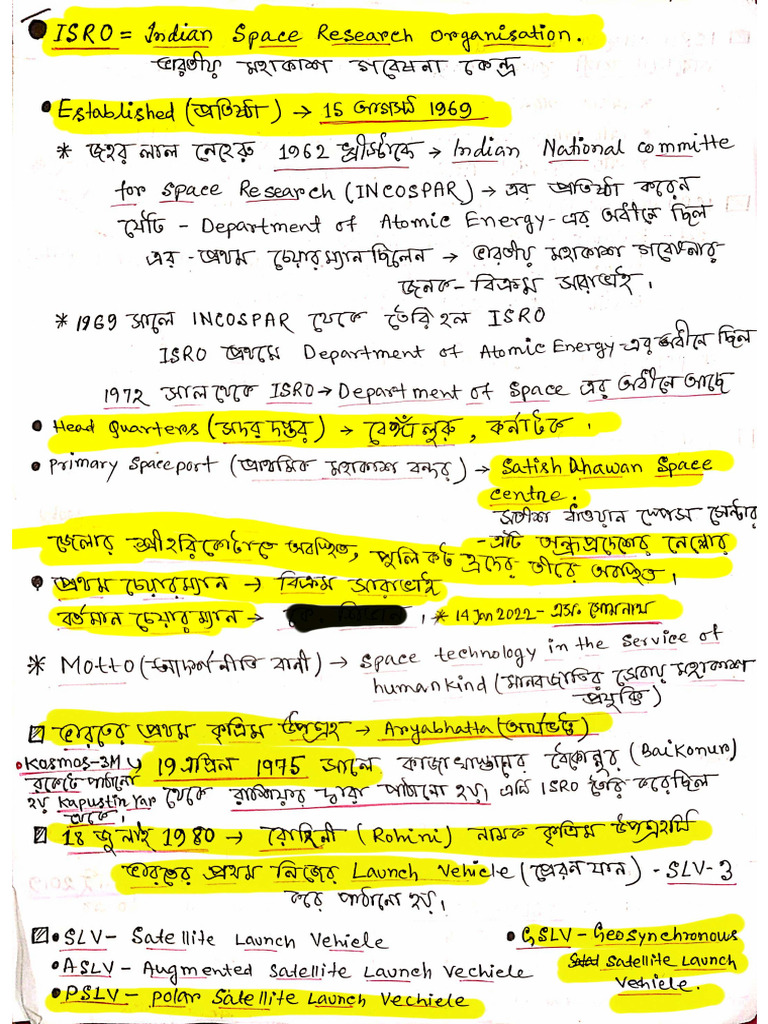 ISRO = Indian Space Research Organisation.
ভারতীয় মহাকাশ গবেষনা কেন্দ্র
Established (প্রতিষ্ঠা) → 15 আগস্ট 1969
* জহর লাল নেহেরু 1962 খ্রীস্টাব্দে → Indian National committe
for Space Research (INCOSPAR) → এর প্রতিষ্ঠা করেন
যেটি - Department of Atomic Energy - এর অধীনে ছিল
এর - প্রথম চেয়ারম্যান ছিলেন → ভারতীয় মহাকাশ গবেষনার
জনক - বিক্রম সারাভাই।
* 1969 সালে INCOSPAR থেকে তৈরি হল ISRO
ISRO প্রথমে Department of Atomic Energy - এর অধীনে ছিল
1972 সাল থেকে ISRO → Department of Space এর অধীনে আছে
Head Quarters (সদর দপ্তর) → বেঙ্গালুরু, কর্নাটক।
Primary Spaceport (প্রাথমিক মহাকাশ বন্দর) → Satish Dhawan Space
centre.
সতীশ ধাওয়ান স্পেস সেন্টার
- এটি অন্ধ্রপ্রদেশের নেল্লোর
জেলার শ্রীহরিকোটাতে অবস্থিত, পুলিকট হ্রদের তীরে অবস্থিত।
প্রথম চেয়ারম্যান → বিক্রম সারাভাই
বর্তমান চেয়ারম্যান → । * 14 Jan 2022 - এস. সোমনাথ
* Motto (আদর্শ নীতি বানী) → Space technology in the Service of
humankind (মানবজাতির সেবায় মহাকাশ
প্রযুক্তি)
ভারতের প্রথম কৃত্রিম উপগ্রহ → Aryabhatta (আর্যভট্ট)
19 এপ্রিল 1975 সালে কাজাখস্তানের বৈকোনুর (Baikonur)
থেকে রাশিয়ার দ্বারা পাঠানো হয়। এটি ISRO তৈরি করেছিল
Kosmos-3M
রকেটে পাঠানো
হয় Kapustin Yar
থেকে।
18 জুলাই 1980 → রোহিনী (Rohini) নামক কৃত্রিম উপগ্রহটি
ভারতের প্রথম নিজের Launch Vehicle (প্রেরনযান) - SLV-3
করে পাঠানো হয়।
SLV - Satellite Launch Vehicle
ASLV - Augmented Satellite Launch Vechicle
PSLV - polar Satellite Launch Vechicle
GSLV - Geosynchronous
Satellite Launch
Vehicle.